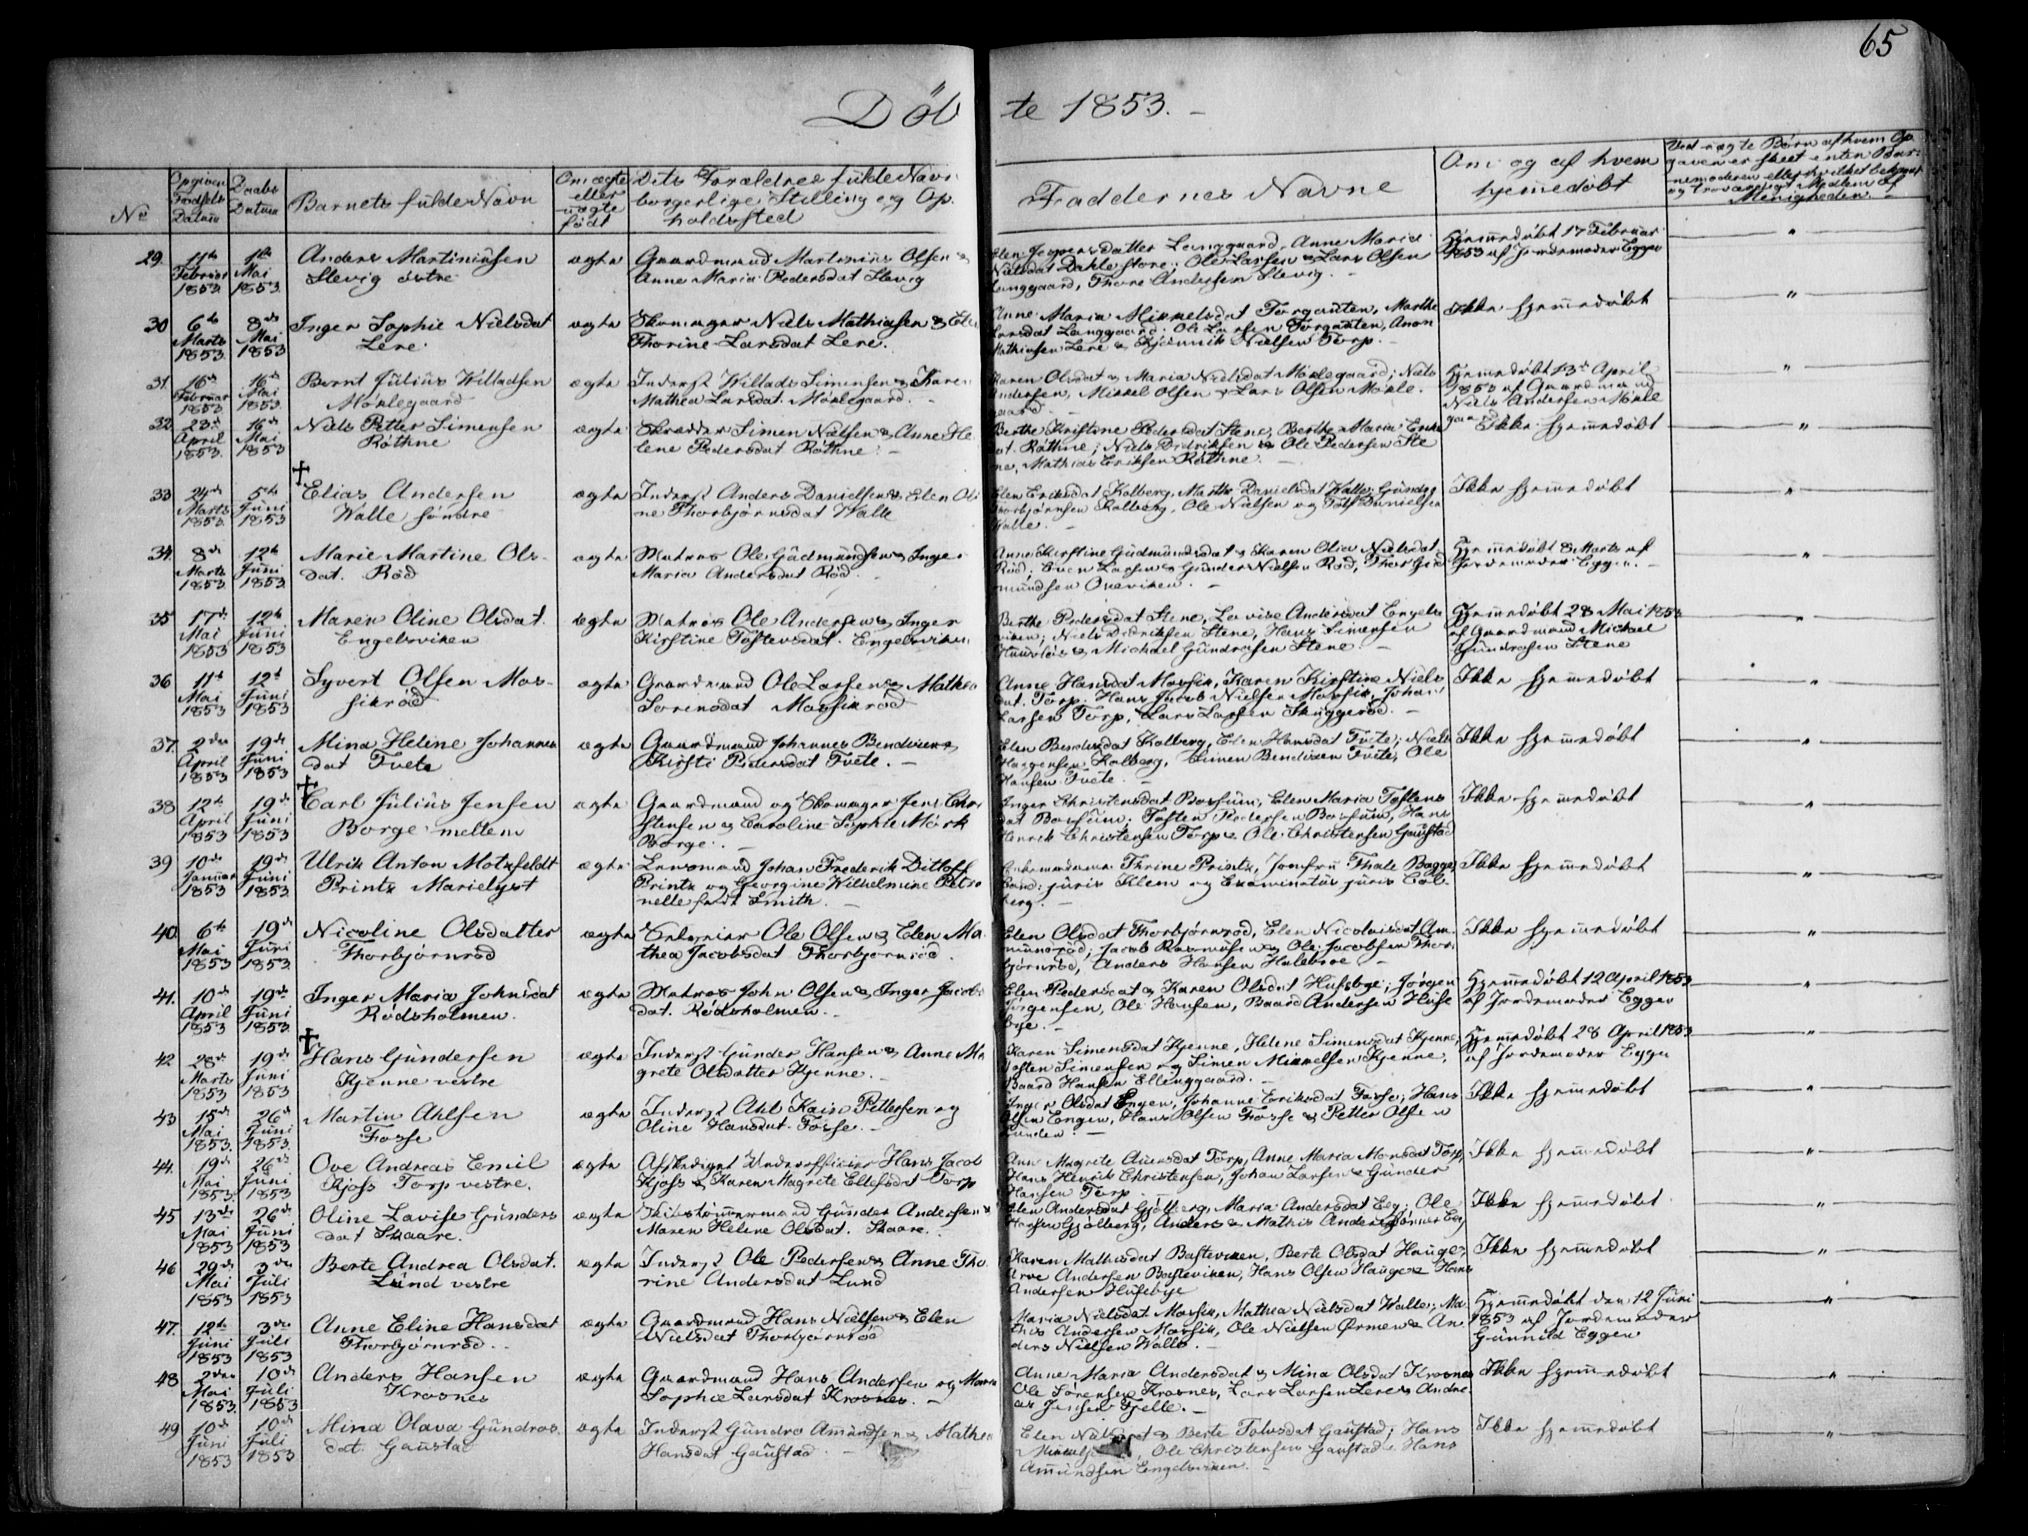 65
Döbte 1853.
No
Opgiven Fødsels Datum
Daabs Datum
Barnets fulde Navn
Om ægte eller uægte født
Dets Forældres fulde Navn borgerlige Stilling og Opholdssted
Faddernes Navne
Om og af hvem hjemmedøbt
Ved uægte Børn af hvem Opgaven er skeet enten Barnemoderen eller hvilket bekjendt og troværdigt Medlem af Menigheden.
29. 11te Februar 1853. 1ste Mai 1853.
Anders Martiniusen
Slevig østre
ægte
Gaardmand Martinius Olsen &
Anne Maria Pedersdat Slevig
Elen Jespersdatter Langgaard, Anne Maria
Nielsdat Dahle store; Ole Larsen & Lars Olsen
Langgaard, Thore Andersen Slevig.
Hjemmedøbt 17 Februar
1853 af Jordemoder Eggen
"
30 6te Marts 1853 8de Mai 1853
Inger Sophie Nielsdat
Lere.
ægte
Skomager Niels Mathiasen & Elen
Thorine Larsdat Lere.
Anne Maria Mikkelsdat Torgauten, Marthe
Larsdat Langgaard; Ole Larsen Torgauten, Anon
Mathiasen Lere & Kjennik Nielsen Torp.
Ikke hjemmedøbt
"
31. 16de Februar 1853 16de Mai 1853.
Bernt Julius Willadsen
Mørlegaard
ægte
Inderst Willads Simensen & Karen
Mathea Larsdat. Mørlegaard.
Karen Olsdat & Maria Nielsdat Mørlegaard; Niels
Andersen, Mikkel Olsen & Lars Olsen Mørle-
gaard
Hjemmedøbt 13de April
1853 af Gaardmand
Niels Andersen Mørle
gaard
"
32. 23de April 1853. 16de Mai 1853
Niels Petter Simensen
Røthne
ægte
Skrædder Simen Nielsen & Anne He
lene Pedersdat Røthne.
Berthe Kirstine Pedersdat Stene, Berthe Maria Eriks
dat. Røthne; Niels Didriksen & Ole Pedersen Ste
ne, Mathias Eriksen Røthne.
Ikke hjemmedøbt
"
33 24de Marts 1853. 5te Juni 1853
Elias Andersen
Walle søndre
ægte
Inderst Anders Danielsen & Elen Oli
ne Thorbjørnsdat Walle
Elen Eriksdat Kolberg, Marthe Danielsdat Walle; Gunder
Thorbjørnsen Kolberg, Ole Nielsen og Tolf Danielsen
Walle.
Ikke hjemmedøbt
"
34. 8de Marts 1853 12te Juni 1853
Marie Martine Ols-
dat. Rød
ægte
Matros Ole Gudmundsen & Inger
Maria Andersdat Rød.
Anne Kirstine Gudmundsdat & Karen Olea Nielsdat
Rød; Even Larsen & Gunder Nielsen Rød, Thor Gud
mundsen Oneviken.
Hjemmedøbt 8 Marts af
Jordemoder Eggen.
"
35 17de Mai 1853 12te Juni 1853
Maren Oline Olsdat.
Engelsviken
ægte
Matros Ole Andersen & Inger
Kirstine Toftevsdat. Engelsviken
Berthe Pedersdat Stene, Lovise Andersdat Engels
viken; Niels Didriksen Stene, Hans Simensen
Huusløs & Michael Gundrosen Stene
Hjemmedøbt 28 Mai 1853
af Gaardmand Michael
Gundrosen Stene
"
36 11te Mai 1853 12te Juni 1853
Syvert Olsen Mos-
sikrød
ægte
Gaardmand Ole Larsen & Mathea
Sørensdat Mossikrød
Anne Hansdat Mossik, Karen Kirstine Niels
dat. Torp; Hans Jacob Nielsen Mossik, Johan
Larsen Torp, Lars Larsen Skuggerød.
Ikke hjemmedøbt
"
37. 2den April 1853 19de Juni 1853
Mina Heline Johannes
dat Tvete
ægte
Gaardmand Johannes Bendixen &
Kirsti Pedersdat Tvete.
Elen Bendixdat Kolberg, Elen Hansdat Tvete; Niels
Haagensen Kolberg, Simen Bendixen Tvete, Ole
Hansen Tvete
Ikke hjemmedøbt
"
38 12te April 1853 19de Juni 1853
Carl Julius Jensen
Borge mellem
ægte
Gaardmand og Skomager Jens Chri
stensen & Caroline Sophie Mørk
Borge.
Inger Christensdat Borsum, Elen Maria Toftens
dat Borsum; Toften Pedersen Borsum, Hans
Henrik Christensen Torp & Ole Christensen Gaustad
Ikke hjemmedøbt
"
39 10de Januar 1853 19de Juni 1853
Ulrik Anton Motzfeldt
Printz Marielyst
ægte
Lensmand Johan Frederik Ditlof
Printz og Georgine Wilhelmine Petro
nelle født Smith.
Enkemadame Thrine Printz, Jomfru Thale Bagge,
Cand. juris Klem og Examinatus juris Col-
berg.
Ikke hjemmedøbt
"
40. 6te Mai 1853 19de Juni 1853
Nicoline Olsdatter
Thorbjørnrød
ægte
Selveier Ole Olsen & Elen Ma-
thea Jacobsdat Thorbjørnrød.
Elen Olsdat Thorbjørnrød, Elen Nicolaisdat Am-
mundrød; Jacob Rasmusen & Ole Jacobsen Thor-
bjørnrød, Anders Hansen Holebroe
Ikke hjemmedøbt
"
41. 10de April 1853 19de Juni 1853.
Inger Maria Johnsdat
Rødsholmen.
ægte
Matros John Olsen & Inger Jacobs
dat. Rødsholmen.
Elen Pedersdat & Karen Olsdat Huseby; Jørgen
Jørgensen, Ole Hansen, Baard Andersen Huse
bye.
Hjemmedøbt 12 April 1853
af Jordemoder Eggen
"
42 28de Marts 1853 19de Juni 1853
Hans Gundersen
Kjenne vestre
ægte
Inderst Gunder Hansen & Anne Ma
grete Olsdatter Kjenne.
Karen Simensdat Kjenne, Helene Simensdat Kjenne;
Toften Simensen og Simen Mikkelsen Kjenne,
Baard Hansen Ellenggaard.
Hjemmedøbt 28 April 1853
af Jordemoder Eggen
"
43 15de Mai 1853. 26de Juni 1853.
Martin Ahlsen
Fosse
ægte
Inderst Ahl Kaisa Pettersen og
Oline Hansdat. Fosse.
Inger Olsdat Engen, Johanne Eriksdat Fosse; Hans
Olsen Engen, Hans Olsen Fosse & Petter Olsen
Lunden
Ikke hjemmedøbt
"
44. 19de Mai 1853. 26de Juni 1853
Ove Andreas Emil
Kjøss Torp vestre.
ægte
Afskediget Underofficier Hans Jacob
Kjøss & Karen Magrete Ellefsdat Torp
Ann Magrete Auersdat Torp, Anne Maria Monsdat Torp;
Hans Henrik Christensen, Johan Larsen & Gunder
Hansen Torp
Ikke hjemmedøbt
"
45 13de Mai 1853 26de Juni 1853
Oline Lovise Gunders
dat Skaare.
ægte
Skibstømmermand Gunder Andersen &
Maren Helene Olsdat. Skaare.
Elen Andersdat Gjølberg, Maria Andersdat Eeg; Ole
Hansen Gjølberg, Anders & Mathis Andersønner Eeg
Ikke hjemmedøbt
"
46 29de Mai 1853 3die Juli 1853
Berte Andrea Olsdat.
Lund vestre
ægte
Inderst Ole Pedersen & Anne Tho-
rine Andersdat Lund
Karen Mathisdat Basteviken, Berte Olsdat Hauge;
Arve Andersen Basteviken, Hans Olsen Hauge & Hans
Andersen Husebye
Ikke hjemmedøbt
"
47. 12te Juni 1853 3die Juli 1853
Anne Eline Hansdat
Thorbjørnrød.
ægte
Gaardmand Hans Nielsen & Elen
Nielsdat Thorbjørnrød
Maria Nielsdat Mossik, Mathea Nielsdat Walle; Ma-
this Andersen Mossik, Ole Nielsen Ørmen & An
ders Nielsen Walle.
Hjemmedøbt den 12 Juni
1853 af Jordemoder
Gunnild Eggen
"
48 2den Mai 1853. 10de Juli 1853
Anders Hansen
Krosnes
ægte
Gaardmand Hans Andersen og Maria
Sophie Larsdat Krosnes.
Anne Maria Andersdat & Mina Olsdat Krosnes
Ole Sørensen Krosnes, Lars Larsen Lere & Andre
as Jensen Fjelle.
Ikke hjemmedøbt
"
49 10de Juni 1853 10de Juli 1853
Mina Olava Gundros
dat. Gaustad
ægte
Inderst Gundro Amundsen & Mathea
Hansdat Gaustad
Elen Nielsdat & Berte Gaustad; Hans
Ole Christensen Gaustad & Hans
Amundsen Engelsviken.
Ikke hjemmedøbt
"